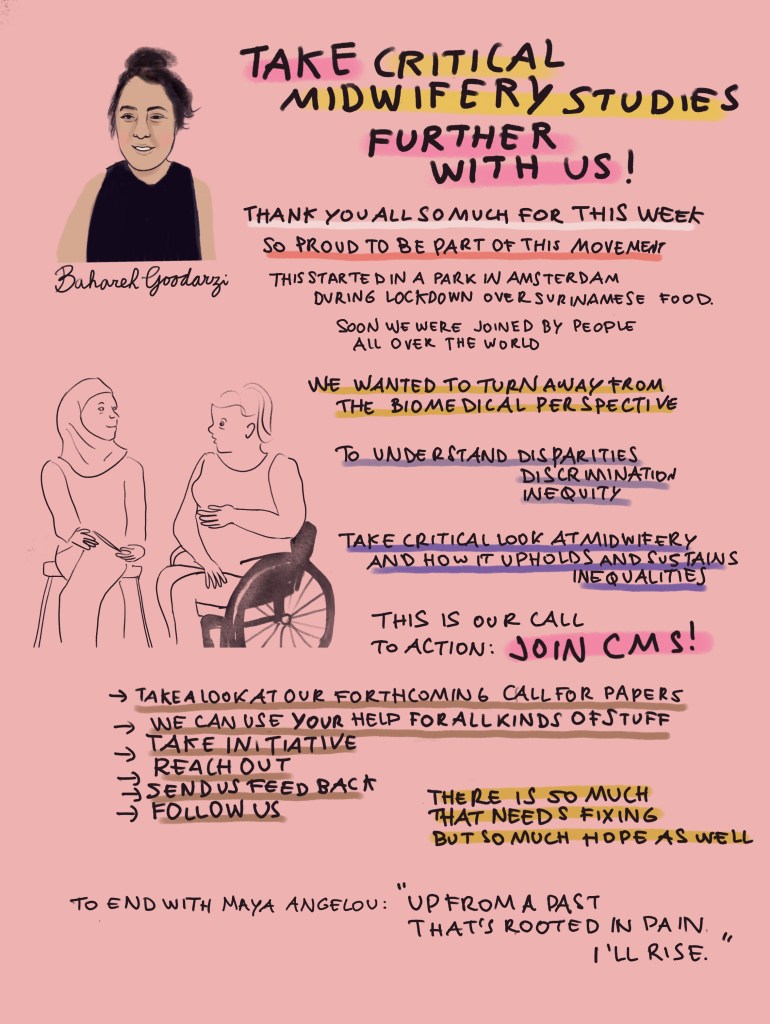 TAKE CRITICAL
MIDWIFERY STUDIES
FURTHER
WITH US!
THANK YOU ALL SO MUCH FOR THIS WEEK
SO PROUD TO BE PART OF THIS MOVEMENT
Bahareh Goodarzi
THIS STARTED IN A PARK IN AMSTERDAM
DURING LOCKDOWN OVER SURINAMESE FOOD.
SOON WE WERE JOINED BY PEOPLE
ALL OVER THE WORLD
WE WANTED TO TURN AWAY FROM
THE BIOMEDICAL PERSPECTIVE
TO UNDERSTAND DISPARITIES
DISCRIMINATION
INEQUITY
TAKE CRITICAL LOOK AT MIDWIFERY
AND HOW IT UPHOLDS AND SUSTAINS
INEQUALITIES
THIS IS OUR CALL
TO ACTION: JOIN CMS!
→ TAKE A LOOK AT OUR FORTHCOMING CALL FOR PAPERS
→ WE CAN USE YOUR HELP FOR ALL KINDS OF STUFF
→ TAKE INITIATIVE
→ REACH OUT
→ SEND US FEED BACK
→ FOLLOW US
THERE IS SO MUCH
THAT NEEDS FIXING
BUT SO MUCH HOPE AS WELL
TO END WITH MAYA ANGELOU: "UP FROM A PAST
THAT'S ROOTED IN PAIN.
I'LL RISE."